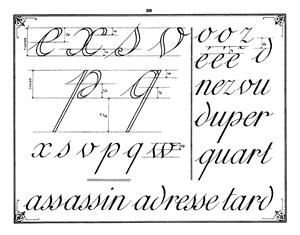 88
e x s v
o o z d
é è ê
p q
nezou
duper
x s v p q w
quart
assassin adresse tard